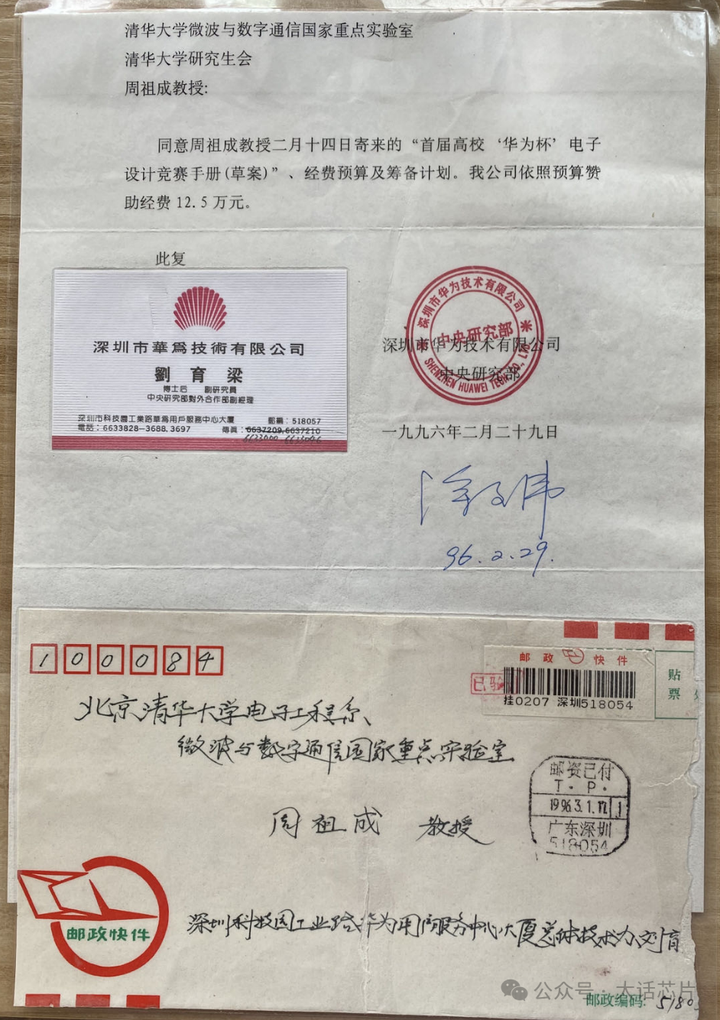 清华大学微波与数字通信国家重点实验室
清华大学研究生会
周祖成教授:
同意周祖成教授二月十四日寄来的“首届高校‘华为杯’电子
设计竞赛手册(草案)”、经费预算及筹备计划。我公司依照预算赞
助经费 12.5 万元。
此复
深圳市華爲技術有限公司
劉育梁
博士后 副研究員
中央研究部對外合作部副經理
深圳市科技園工業路華爲用戶服務中心大廈 郵編：518057
電話：6633828-3688.3697 傳真：6637209.6637210
深圳市华为技术有限公司
中央研究部
SHENZHEN HUAWEI TECH. CO., LTD
深圳市华为技术有限公司
中央研究部
一九九六年二月二十九日
96.2.29.
100084
邮政快件
挂0207 深圳518054
贴
票
北京清华大学电子工程系
微波与数字通信国家重点实验室
周祖成 教授
邮资已付
T.P.
1996.3.1.
广东深圳
518054
邮政快件
深圳科技园工业路华为用户服务中心大厦总体技术办 刘育
邮政编码: 5180
公众号 · 大话芯片